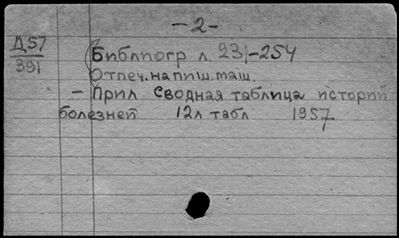 -2-
Д57
391
Библиогр л. 231-254
Отпеч. на пиш. маш.
- Прил Сводная таблица историй
болезней 12л табл 1957